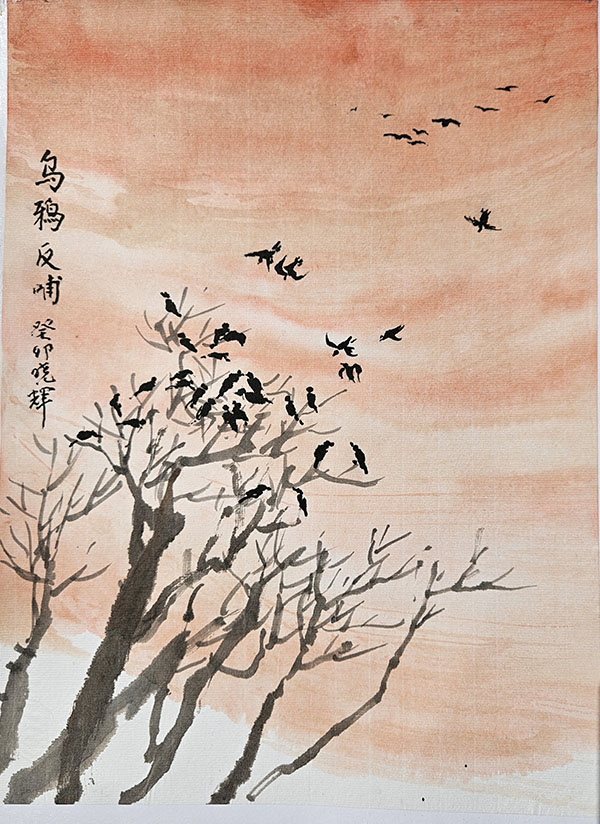 乌鸦反哺
癸卯晓辉